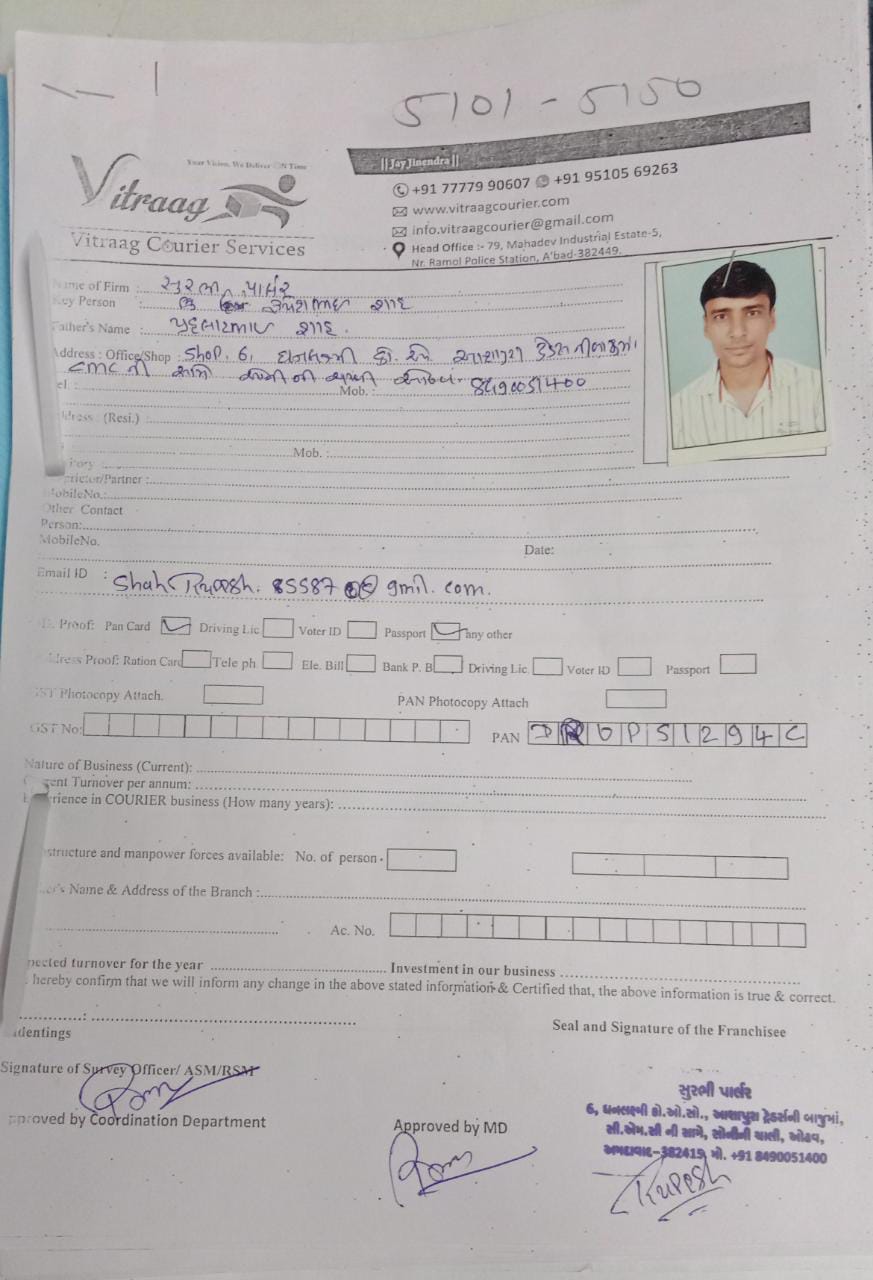 5101 - 5150
Your Vision, We Deliver ON Time
||Jay Jinendra||
Vitraag
Vitraag Courier Services
+91 77779 90607 +91 95105 69263
www.vitraagcourier.com
info.vitraagcourier@gmail.com
Head Office :- 79, Mahadev Industrial Estate-5,
Nr. Ramol Police Station, A'bad-382449.
Name of Firm :
Key Person : શાહ
Father's Name : શાહ.
Address : Office/Shop : Shop. 6,
CMC ની
Tel. Mob. : 8490051400
Address : (Resi.) :
Mob. :
Proprietor/Partner :
MobileNo.:
Other Contact
Person:
MobileNo. Date:
Email ID : Shah Rupesh. 85587 @ gmil. com.
I.D. Proof: Pan Card Driving Lic Voter ID Passport any other
Address Proof: Ration Card Tele ph. Ele. Bill Bank P. B Driving Lic. Voter ID Passport
GST Photocopy Attach. PAN Photocopy Attach
GST No: PAN PS1294C
Nature of Business (Current):
Current Turnover per annum:
Experience in COURIER business (How many years):
structure and manpower forces available: No. of person
Name & Address of the Branch :
Ac. No.
Expected turnover for the year Investment in our business
I hereby confirm that we will inform any change in the above stated information & Certified that, the above information is true & correct.
Seal and Signature of the Franchisee
Signature of Survey Officer/ ASM/RSM
Approved by Coordination Department
Approved by MD
સુરભી પાર્લર
6, ધનલક્ષ્મી કો.ઓ.સો., આશાપુરા ટ્રેડર્સની બાજુમાં,
સી.એમ.સી ની સામે, સોનીની ચાલી, ઓઢવ,
અમદાવાદ-382415, મો. +91 8490051400
Rupesh